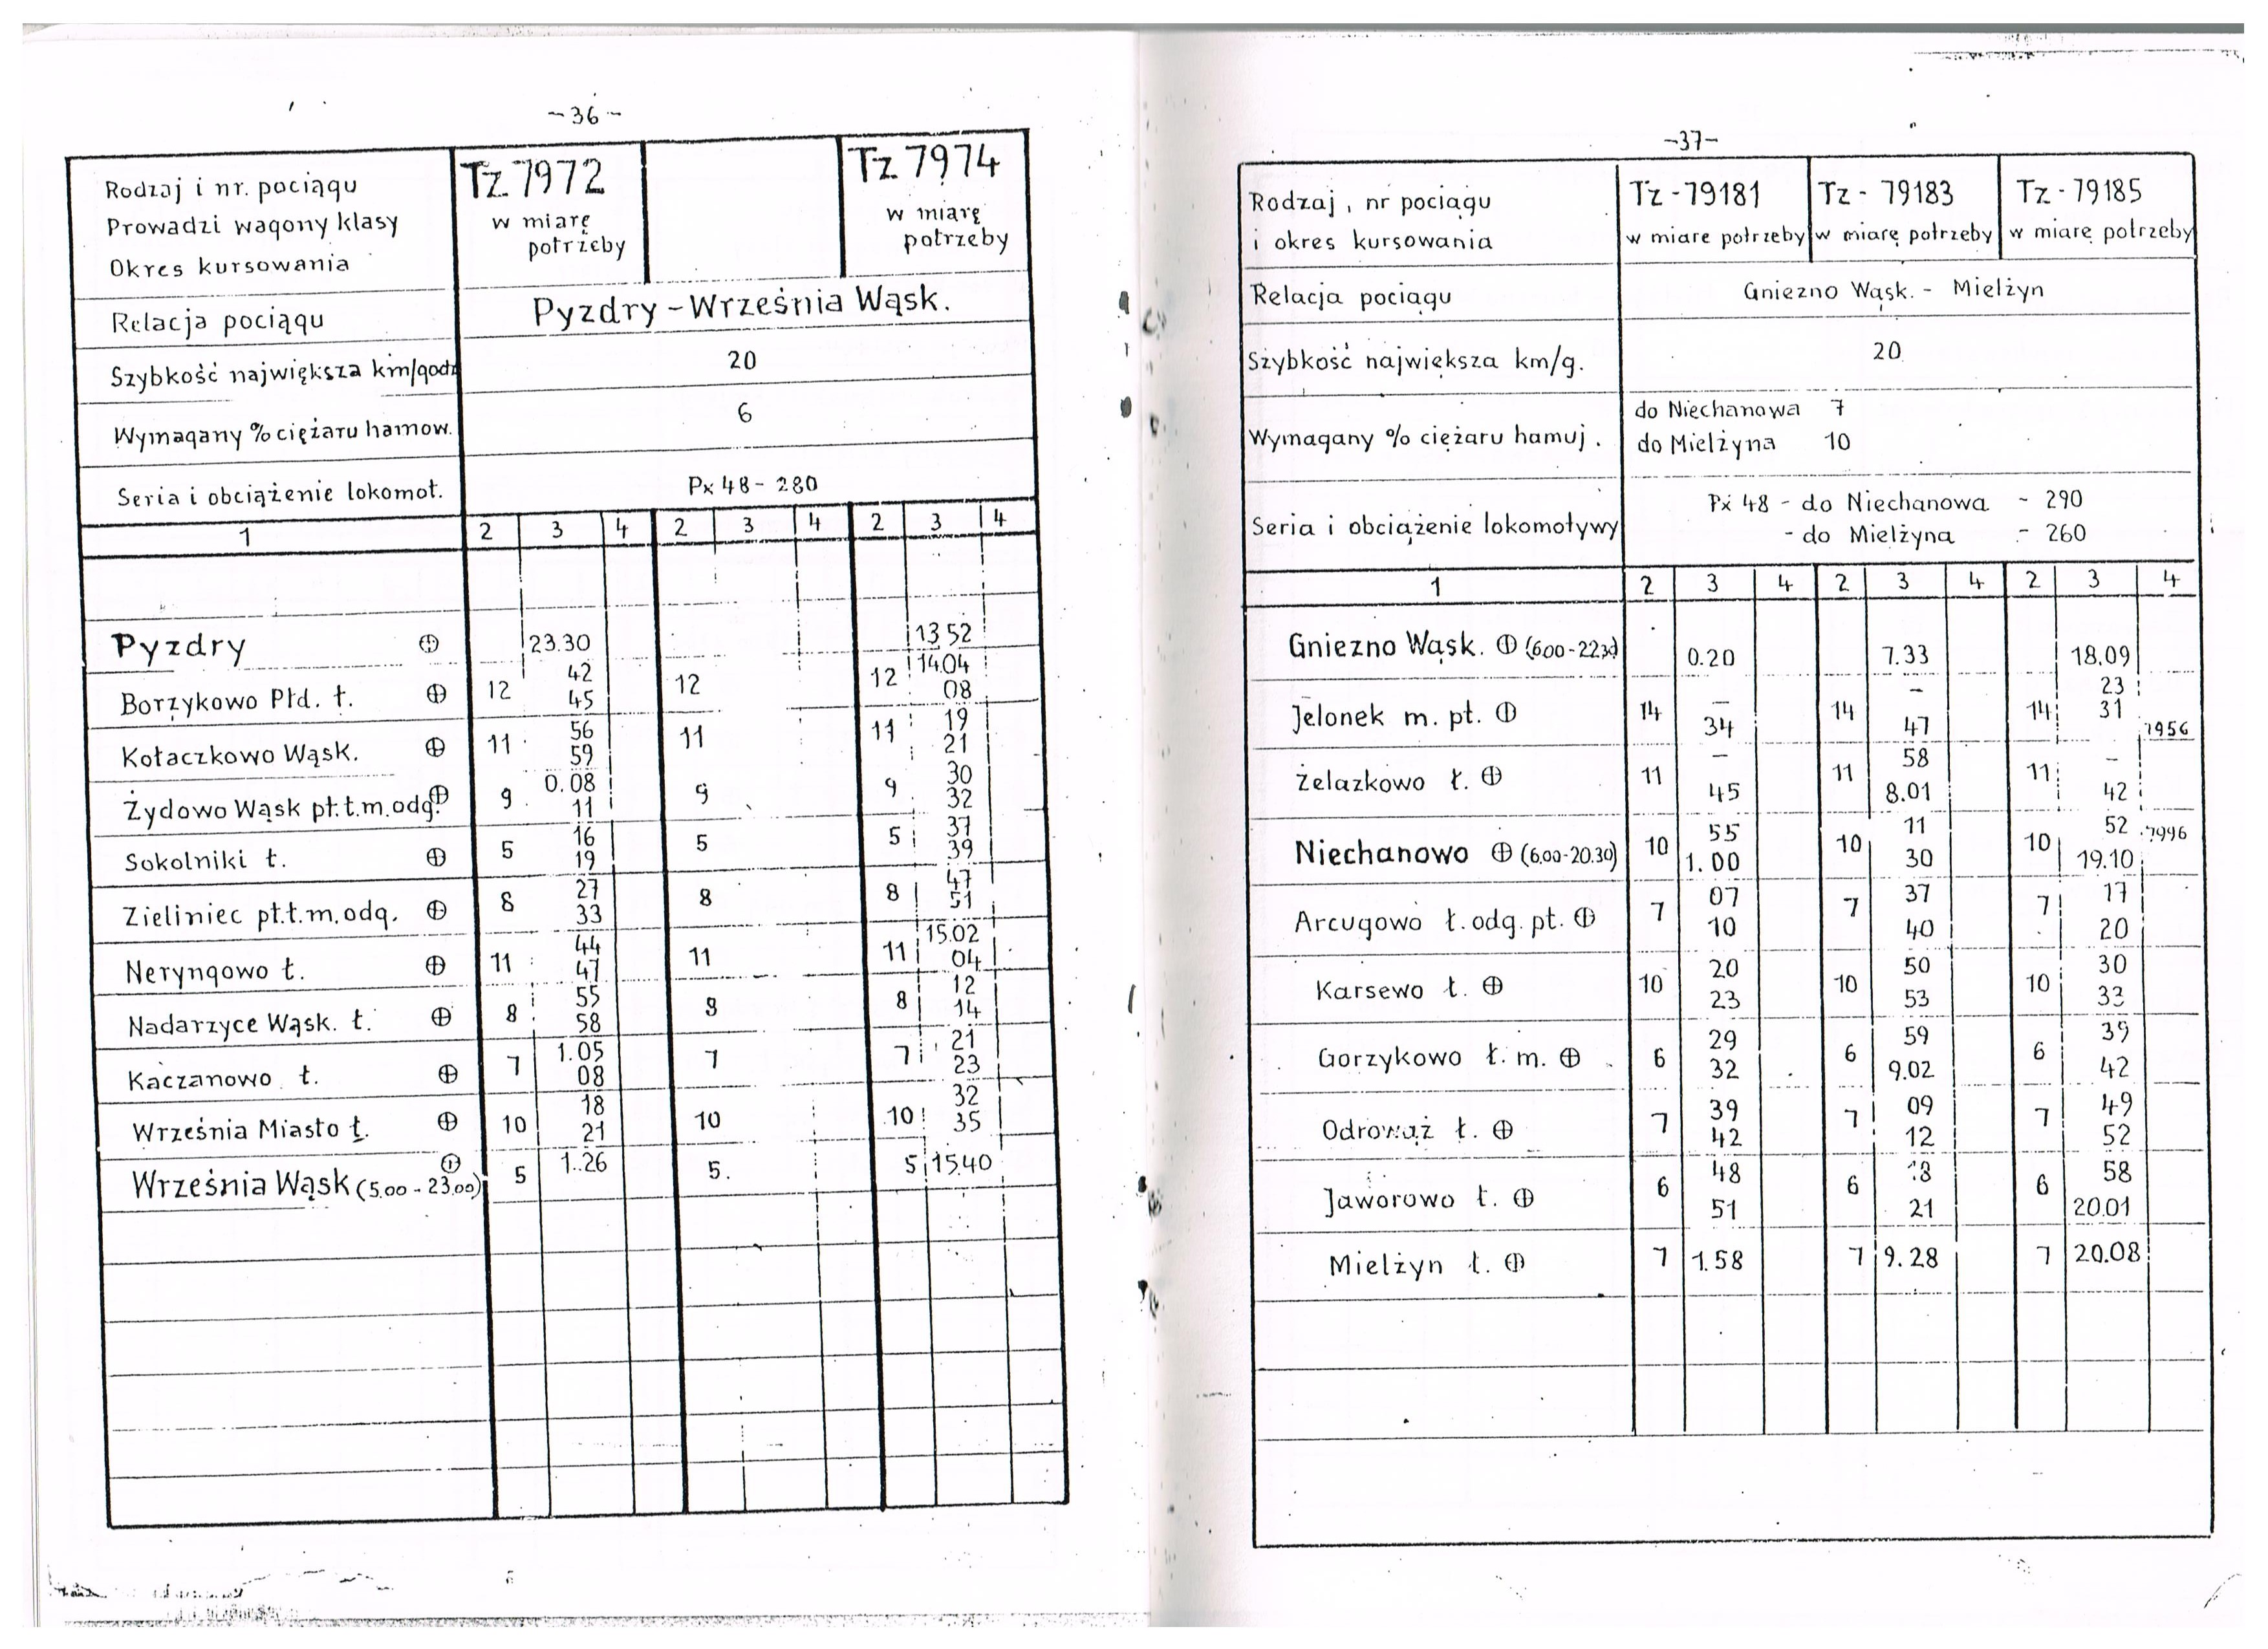 -36-
Rodzaj i nr. pociągu
Prowadzi wagony klasy
Okres kursowania
Tz 7972
w miarę
potrzeby
Tz 7974
w miarę
potrzeby
Relacja pociągu
Pyzdry - Września Wąsk.
Szybkość największa km/godz
20
Wymagany % ciężaru hamow.
6
Seria i obciążenie lokomot.
Px 48 - 280
1 2 3 4 2 3 4 2 3 4
Pyzdry ⊕ 23.30 13 52
Borzykowo Płd. ł. ⊕ 12 42 12 12 14.04
45 08
Kołaczkowo Wąsk. ⊕ 11 56 11 11 19
59 21
Żydowo Wąsk pł.t.m.odg. ⊕ 9 0.08 9 9 30
11 32
Sokolniki ł. ⊕ 5 16 5 5 37
19 39
Zieliniec pt.t.m.odg. ⊕ 8 27 8 8 47
33 51
Neryngowo ł. ⊕ 11 44 11 11 15.02
47 04
Nadarzyce Wąsk. ł. ⊕ 8 55 8 8 12
58 14
Kaczanowo ł. ⊕ 7 1.05 7 7 21
08 23
Września Miasto ł. ⊕ 10 18 10 10 32
21 35
Września Wąsk (5.00 - 23.00) ⊕ 5 1.26 5. 5 15.40
-37-
Rodzaj, nr pociągu
i okres kursowania
Tz - 79181
w miare potrzeby
Tz - 79183
w miarę potrzeby
Tz - 79185
w miarę potrzeby
Relacja pociągu
Gniezno Wąsk. - Mielżyn
Szybkość największa km/g.
20
Wymagany % ciężaru hamuj.
do Niechanowa 7
do Mielżyna 10
Seria i obciążenie lokomotywy
Px 48 - do Niechanowa - 290
- do Mielżyna - 260
1 2 3 4 2 3 4 2 3 4
Gniezno Wąsk. ⊕ (6.00-22.30) 0.20 7.33 18.09
Jelonek m. pt. ⊕ 14 — 14 — 14 23
34 47 31 7956
Żelazkowo ł. ⊕ 11 — 11 58 11 —
45 8.01 42
Niechanowo ⊕ (6.00-20.30) 10 55 10 11 10 52 7996
1.00 30 19.10
Arcugowo ł. odg. pt. ⊕ 7 07 7 37 7 17
10 40 20
Karsewo ł. ⊕ 10 20 10 50 10 30
23 53 33
Gorzykowo ł. m. ⊕ 6 29 6 59 6 39
32 9.02 42
Odrowąż ł. ⊕ 7 39 7 09 7 49
42 12 52
Jaworowo ł. ⊕ 6 48 6 18 6 58
51 21 20.01
Mielżyn ł. ⊕ 7 1.58 7 9.28 7 20.08